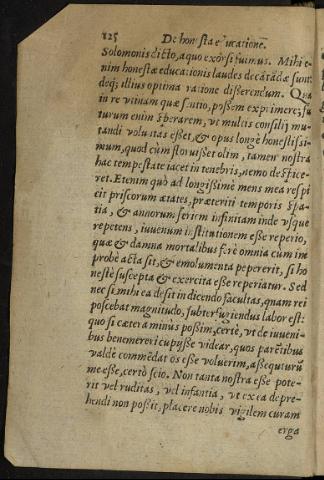 125 De honesta educatione.
Solomonis dicto, a quo exorsi fuimus. Mihi e-
nim honestæ educationis laudes decãtãdæ sunt:
deq; illius optima ratione disserendum. Qua
in re vtinam quæ sentio, possem exprimere; fu-
turum enim sperarem, vt multis consilij mu-
tandi voluntas esset, & opus longè honestissi-
mum, quod cùm floruisset olim, tamen nostra
hac tempestate iacet in tenebris, nemo despice-
ret. Etenim quò ad longissimè mens mea respi
cit priscorum ætates, præteriti temporis spa-
tia, & annorum seriem infinitam inde vsque
repetens, iuuenum institutionem esse reperio,
quæ & damna mortalibus ferè omnia cum im
probè acta sit, & emolumenta pepererit, si ho
nestè suscepta & exercita esse reperiatur. Sed
nec si mihi ea desit in dicendo facultas, quam rei
poscebat magnitudo, subterfugiendus labor est:
quo si cætera minus possim, certè, vt de iuueni-
bus benemereri cupijsse videar, quos parẽtibus
valdè commẽdatos esse voluerim, assequuturũ
me esse, certò scio. Non tanta nostra esse pote-
rit vel ruditas, vel infantia, vt ex ea depre-
hendi non possit, placere nobis vigilem curam
erga